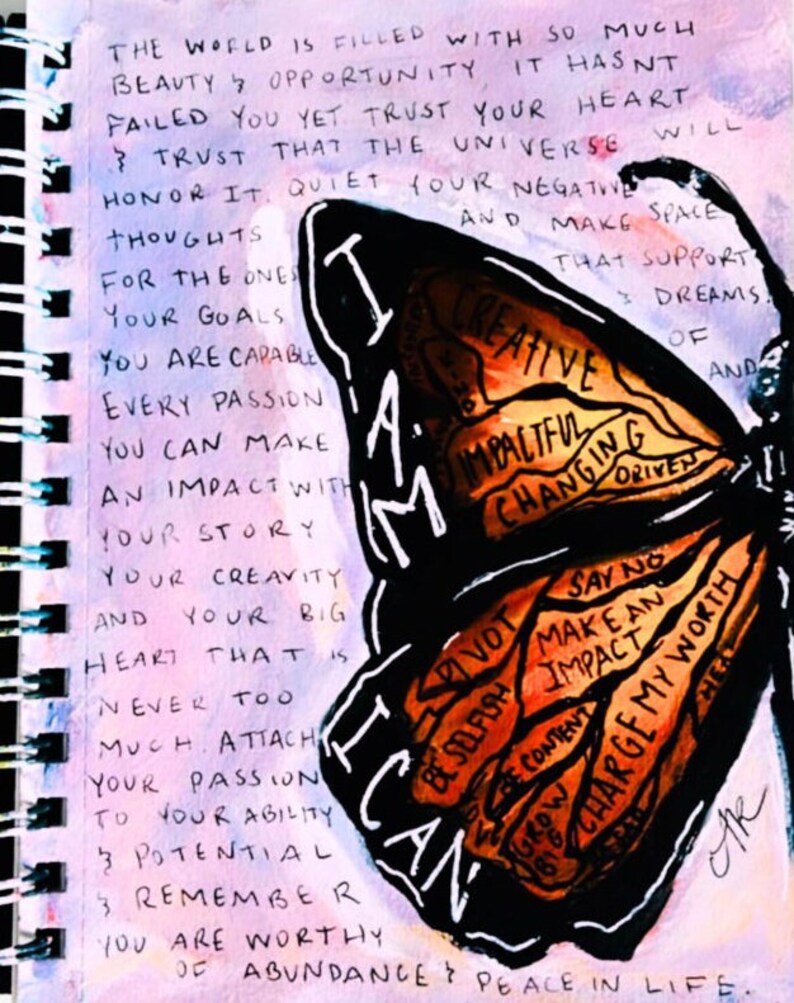 THE WORLD IS FILLED WITH SO MUCH
BEAUTY & OPPORTUNITY, IT HASNT
FAILED YOU YET. TRUST YOUR HEART
& TRUST THAT THE UNIVERSE WILL
HONOR IT. QUIET YOUR NEGATIVE
THOUGHTS AND MAKE SPACE
FOR THE ONES THAT SUPPORT
YOUR GOALS & DREAMS.
YOU ARE CAPABLE OF
EVERY PASSION AND
YOU CAN MAKE
AN IMPACT WITH
YOUR STORY
YOUR CREAVITY
AND YOUR BIG
HEART THAT IS
NEVER TOO
MUCH. ATTACH
YOUR PASSION
TO YOUR ABILITY
& POTENTIAL
& REMEMBER
YOU ARE WORTHY
OF ABUNDANCE & PEACE IN LIFE.
I AM
CREATIVE
IMPACTFUL
CHANGING
DRIVEN
I CAN
SAY NO
PIVOT
MAKE AN
IMPACT
CHARGE MY WORTH
BE SELFISH
BE CONTENT
GROW
BIG